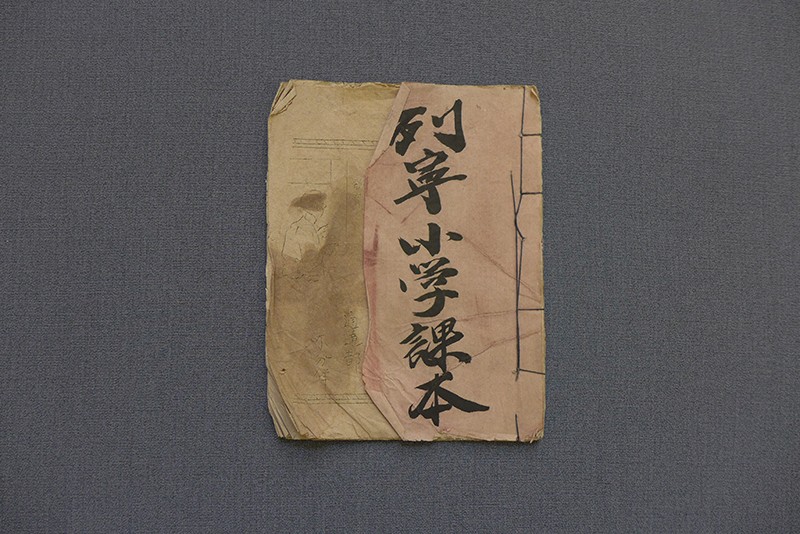 列寧小学課本